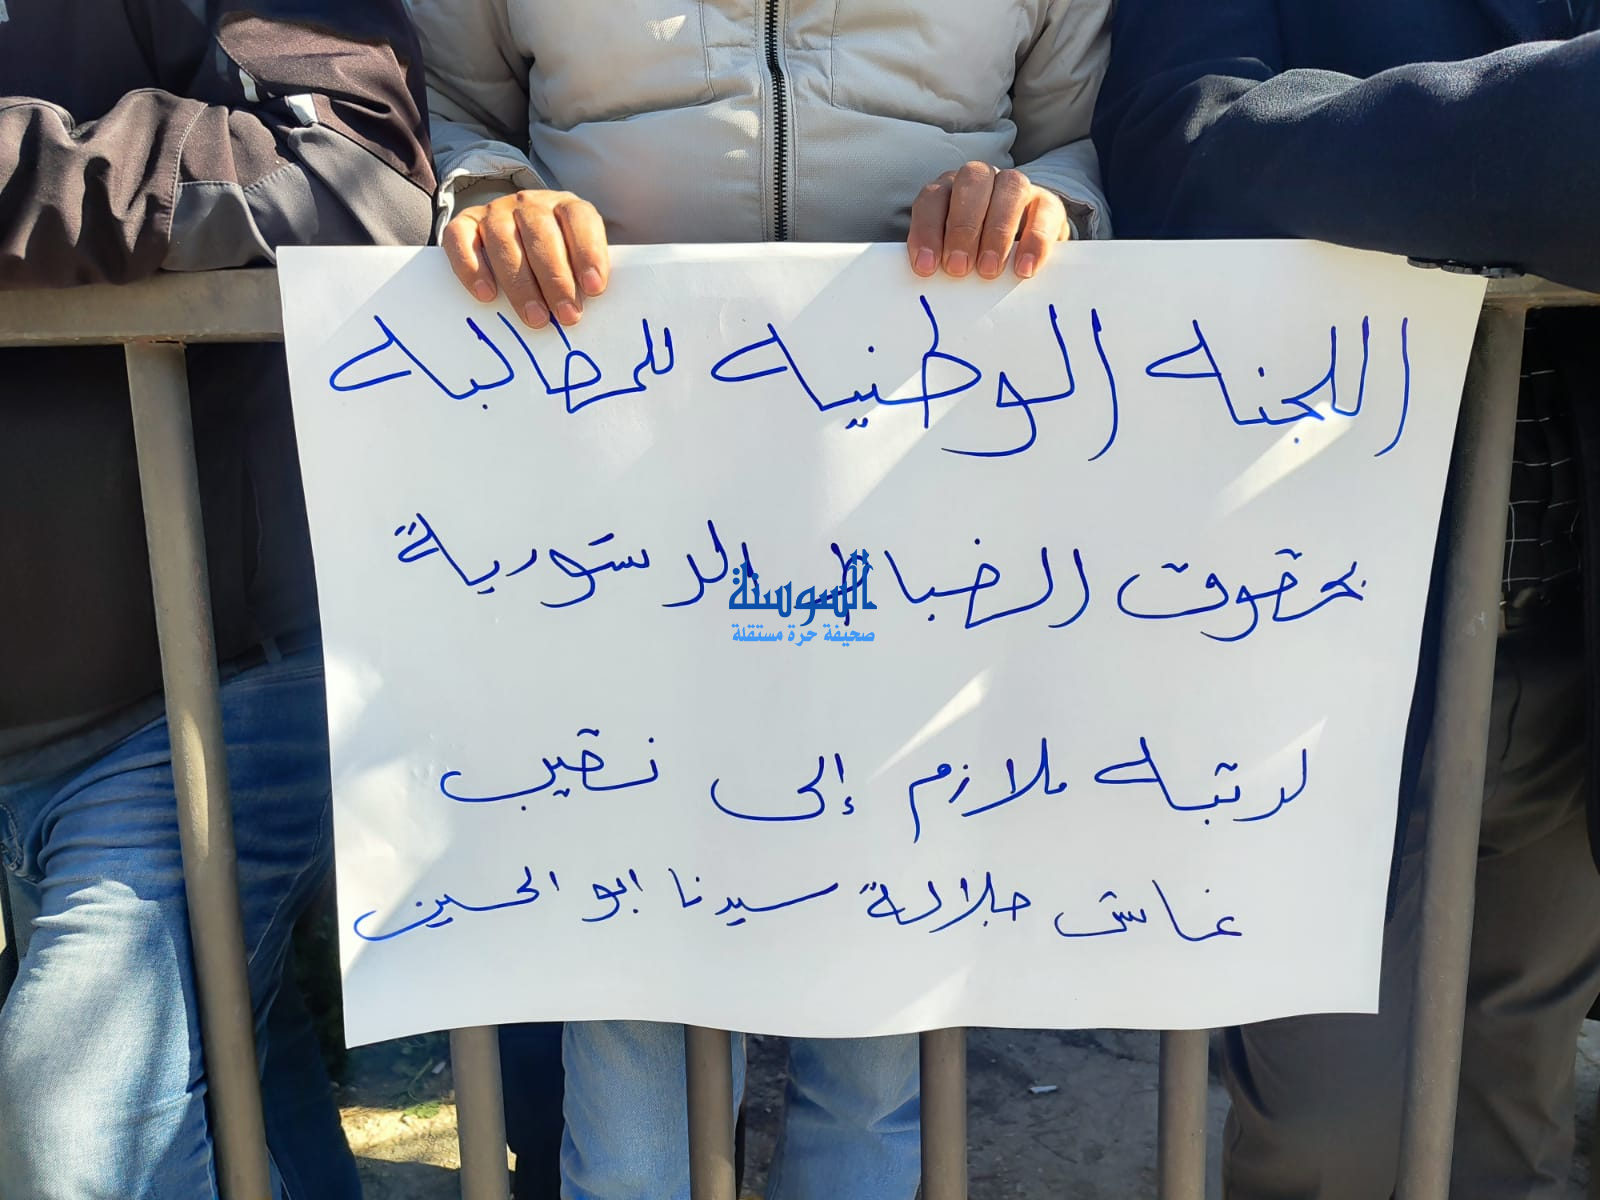 اللجنه الوطنيه للمطالبه
بحقوق الضباط الدستورية
السوسنة
صحيفة حرة مستقلة
لرتبه ملازم إلى نقيب
عاش جلالة سيدنا ابو الحسين